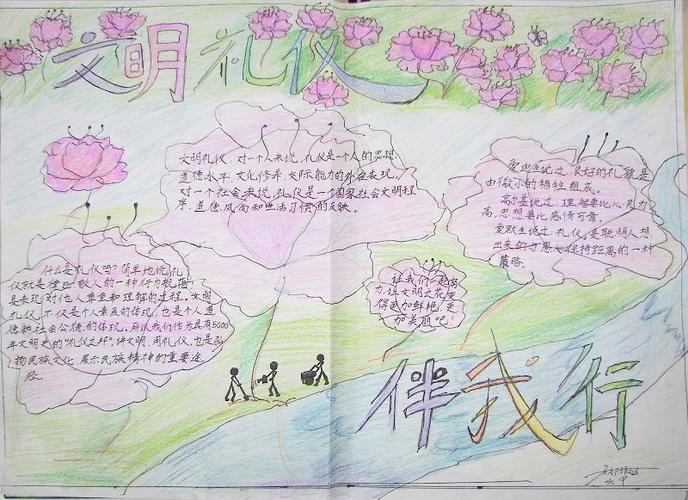 文明礼仪
文明礼仪，对一个人来说，礼仪是一个人的思想
道德水平，文化修养，交际能力的外在表现，
对一个社会来说，礼仪是一个国家社会文明程
序，道德风尚和生活习惯的反映。
爱迪生说过，良好的礼貌是
由微小的牺牲组成。
高尔基说过，理想要比心灵为
高，思想要比感情可靠。
爱默生说过，礼仪，是聪明人想
出来的与愚人保持距离的一种
策略。
什么是礼仪吗？简单地说，礼
仪就是律己敬人的一种行为规范，
是表现对他人尊重和理解的过程。文明
礼仪，不仅是个人素质的体现，也是个人道
德和社会公德的体现，所以我们作为具有5000
年文明史的“礼仪之邦”，讲文明，用礼仪，也是弘
扬民族文化，展示民族精神的重要途
径。
让我们一起努
力，让文明之花变
得更加鲜艳，更
加美丽吧！
伴我行